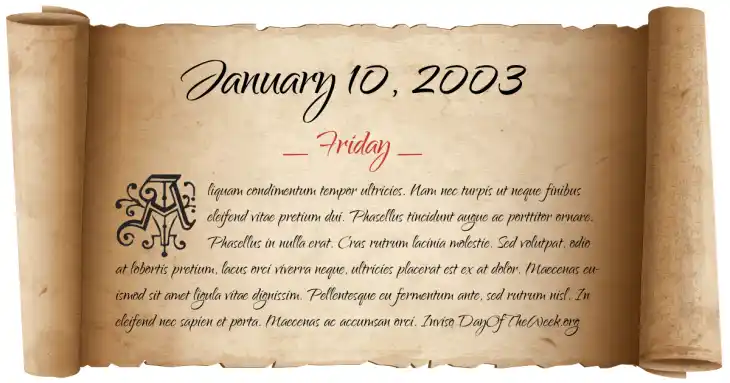 January 10, 2003
_ Friday _
Aliquam condimentum tempor ultricies. Nam nec turpis ut neque finibus
eleifend vitae pretium dui. Phasellus tincidunt augue ac porttitor ornare.
Phasellus in nulla erat. Cras rutrum lacinia molestie. Sed volutpat, odio
at lobortis pretium, lacus orci viverra neque, ultricies placerat est ex at dolor. Maecenas eu-
ismod sit amet ligula vitae dignissim. Pellentesque eu fermentum ante, sed rutrum nisl. In
eleifend nec sapien et porta. Maecenas ac accumsan orci. Inviso DayOfTheWeek.org